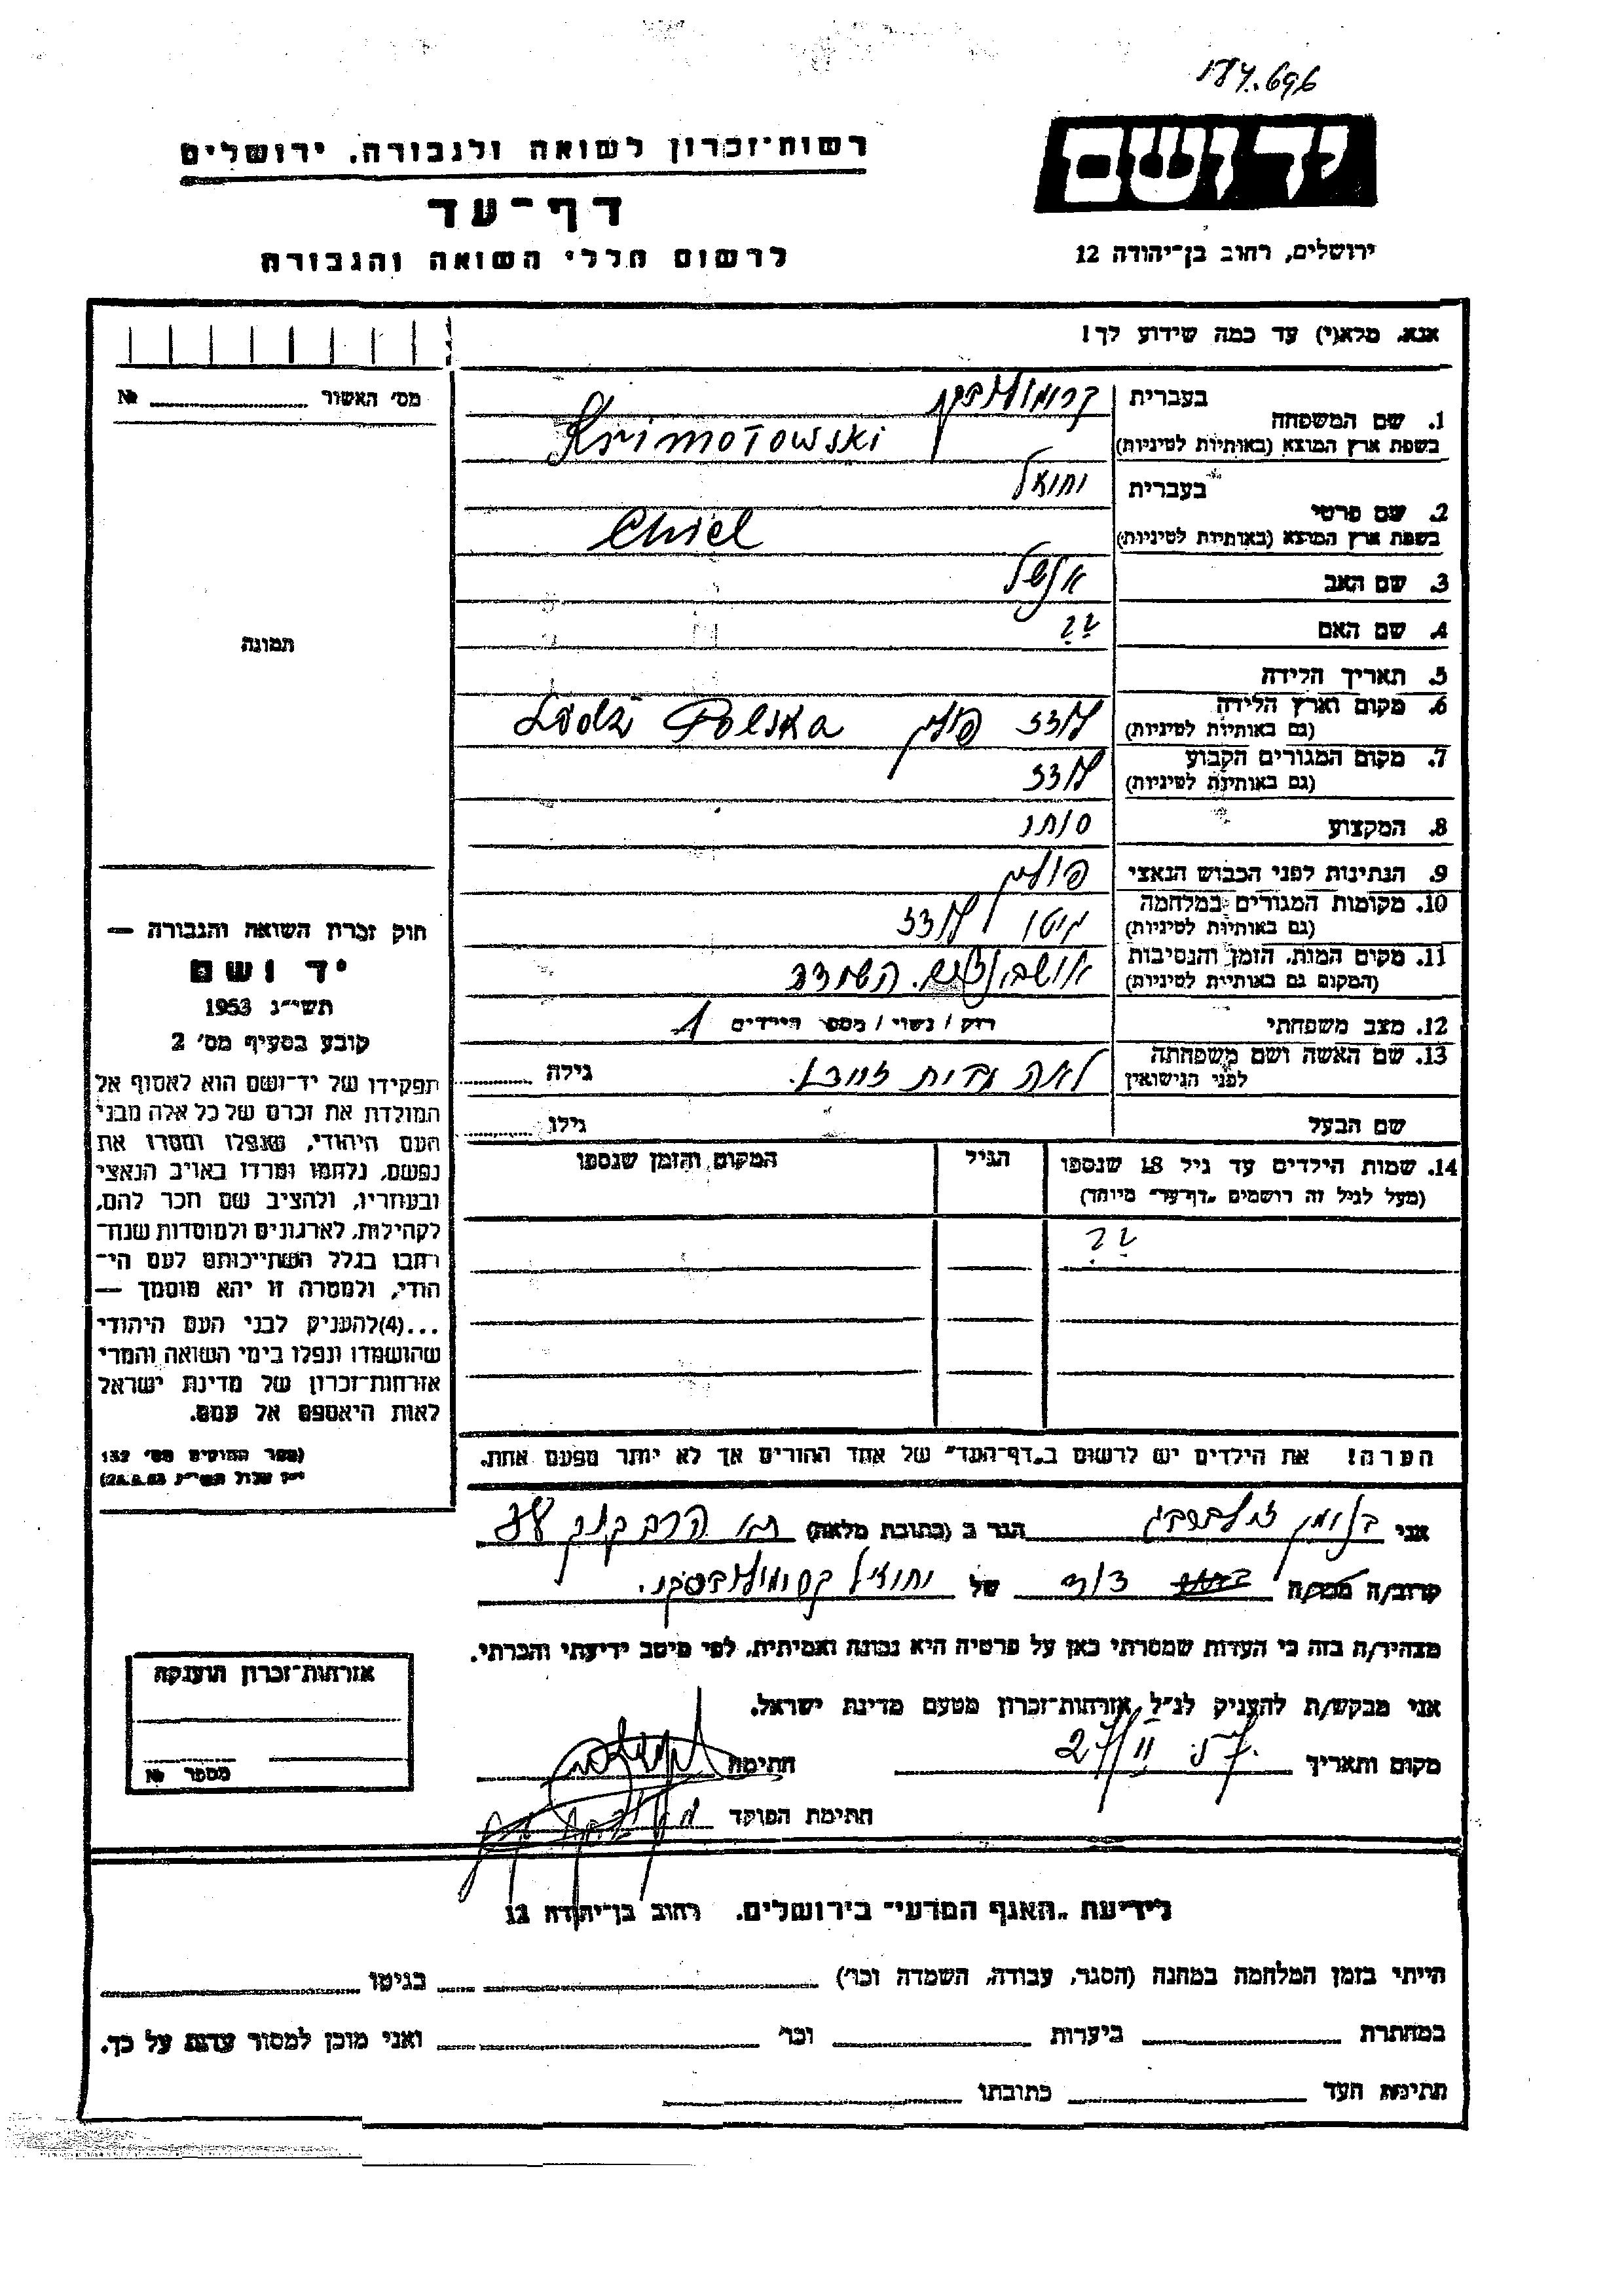 184.696
יד ושם
ירושלים, רחוב בן־יהודה 12
רשות־זכרון לשואה ולגבורה, ירושלים
דף־עד
לרשום חללי השואה והגבורה
אנא, מלא(י) עד כמה שידוע לך!
מס׳ האשור № 
1. שם המשפחה
בעברית
בשפת ארץ המוצא (באותיות לטיניות) Krimotowski
2. שם פרטי
בעברית יחיאל
בשפת ארץ המוצא (באותיות לטיניות) Chiel
3. שם האב אנשל
4. שם האם ? ?
5. תאריך הלידה
6. מקום וארץ הלידה (גם באותיות לטיניות) לודז פולין Lodz Polska
7. מקום המגורים הקבוע (גם באותיות לטיניות) לודז
8. המקצוע סוחר
9. הנתינות לפני הכבוש הנאצי פולין
10. מקומות המגורים במלחמה (גם באותיות לטיניות) גיטו לודז
11. מקום המות, הזמן והנסיבות (המקום גם באותיות לטיניות) השמדה
12. מצב משפחתי רוק / נשוי / מספר הילדים 1
13. שם האשה ושם משפחתה לפני הנישואין לאה לבית גילה
שם הבעל גילו
14. שמות הילדים עד גיל 18 שנספו (מעל לגיל זה רושמים „דף־עד״ מיוחד)
הגיל
המקום והזמן שנספו
? ?
הערה! את הילדים יש לרשום ב„דף־העד״ של אחד ההורים אך לא יותר מפעם אחת.
תמונה
חוק זכרון השואה והגבורה —
יד ושם
תשי״ג 1953
קובע בסעיף מס׳ 2
תפקידו של יד־ושם הוא לאסוף אל
המולדת את זכרם של כל אלה מבני
העם היהודי, שנפלו ומסרו את
נפשם, נלחמו ומרדו באויב הנאצי
ובעוזריו, ולהציב שם וזכר להם,
לקהילות, לארגונים ולמוסדות שנח־
רבו בגלל השתייכותם לעם הי־
הודי, ולמטרה זו יהא מוסמך —
...(4) להעניק לבני העם היהודי
שהושמדו ונפלו בימי השואה והמרי
אזרחות־זכרון של מדינת ישראל
לאות היאספם אל עמם.
(ספר החוקים מס׳ 132
י״ז אלול תשי״ג 28.8.53)
אני בנימין הגר ב (כתובת מלאה)
קרוב/ה מכר/ה דוד של יחיאל
מצהיר/ה בזה כי העדות שמסרתי כאן על פרטיה היא נכונה ואמיתית, לפי מיטב ידיעתי והכרתי.
אני מבקש/ת להעניק לנ״ל אזרחות־זכרון מטעם מדינת ישראל.
מקום ותאריך 27/11 57. חתימה
חתימת הפוקד
אזרחות־זכרון הוענקה
מספר №
לידיעת „האגף המדעי״ בירושלים, רחוב בן־יהודה 12
הייתי בזמן המלחמה במחנה (הסגר, עבודה, השמדה וכו׳) בגיטו
במחתרת ביערות וכו׳ ואני מוכן למסור עדות על כך.
חתימת העד כתובתו